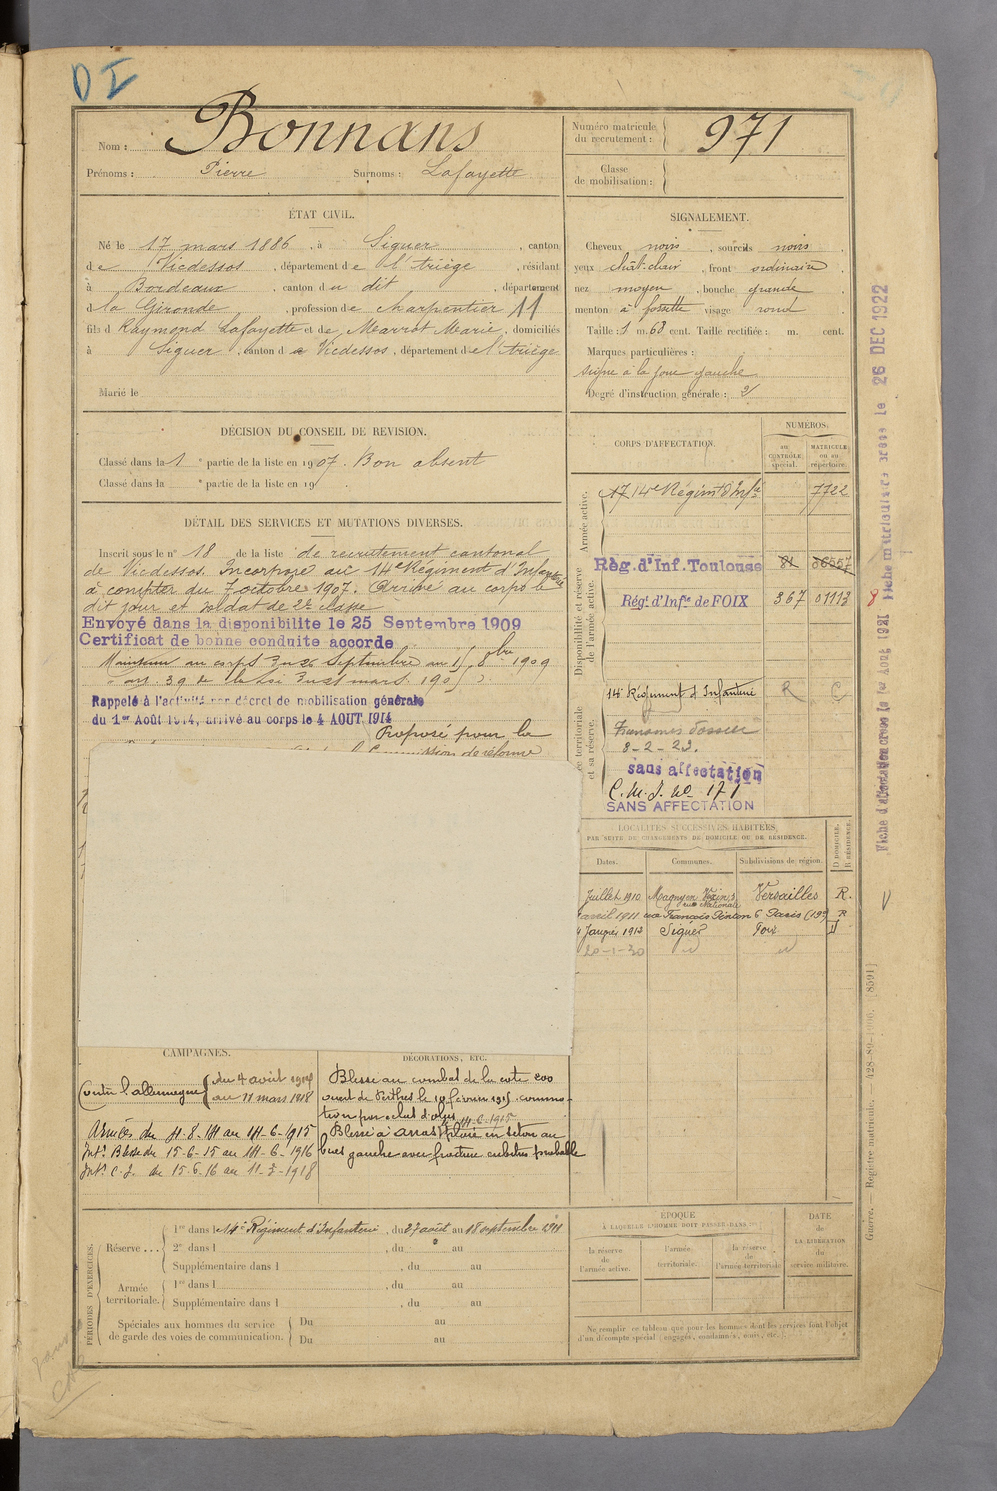 DI
Nom : Bonnans
Prénoms : Pierre Surnoms : Lafayette
Numéro matricule du recrutement : 971
Classe de mobilisation :
ÉTAT CIVIL.
Né le 17 mars 1886, à Siguer, canton
de Vicdessos, département de l'Ariège, résidant
à Bordeaux, canton du dit, département
d la Gironde, profession de charpentier 11
fils d Raymond Lafayette et de Marrot Marie, domiciliés
à Siguer, canton de Vicdessos, département de l'Ariège
Marié le
SIGNALEMENT.
Cheveux noirs, sourcils noirs
yeux chât-clair, front ordinaire,
nez moyen, bouche grande
menton à fossette visage rond
Taille : 1 m. 68 cent. Taille rectifiée : m. cent.
Marques particulières :
signe à la joue gauche
Degré d'instruction générale : 2
DÉCISION DU CONSEIL DE REVISION.
Classé dans la 1 e partie de la liste en 1907. Bon absent
Classé dans la e partie de la liste en 19
DÉTAIL DES SERVICES ET MUTATIONS DIVERSES.
Inscrit sous le n° 18 de la liste de recrutement cantonal
de Vicdessos. Incorporé au 14e Régiment d'Infanterie
à compter du 7 octobre 1907. Arrivé au corps le
dit jour et soldat de 2e classe
Envoyé dans la disponibilité le 25 Septembre 1909
Certificat de bonne conduite accordé
Maintenu au corps du 26 Septembre au 1er 8bre 1909
art. 39 de la loi du 21 mars 1905
Rappelé à l'activité par décret de mobilisation générale
du 1er Août 1914, arrivé au corps le 4 AOUT 1914
Proposé pour la
Commission de réforme
CORPS D'AFFECTATION.
NUMÉROS.
au CONTRÔLE spécial.
MATRICULE ou au répertoire.
Armée active.
14e Régimt d'Infie 7722
Disponibilité et réserve de l'armée active.
Rég. d'Inf. Toulouse 81
Régt d'Infie de FOIX 367 01113
Armée territoriale et sa réserve.
14e Régiment d'Infanterie R C
8-2-23.
sans affectation
C.M.J. no 171
SANS AFFECTATION
LOCALITÉS SUCCESSIVES HABITÉES
PAR SUITE DE CHANGEMENTS DE DOMICILE OU DE RÉSIDENCE.
Dates. Communes. Subdivisions de région. D DOMICILE. R RÉSIDENCE.
Juillet 1910 Magny en Vexin, rue Nationale Versailles R.
avril 1911 6 Paris (19e) R
Janvier 1912 Siguer Foix D
20-1-30 id id
CAMPAGNES.
Contre l'allemagne du 4 août 1914
au 11 mars 1918
Armées du 4.8.14 au 14-6-1915
Intr Blessé du 15-6-15 au 14-6-1916
Intr C.J. du 15.6.16 au 11-3-1918
DÉCORATIONS, ETC.
Blessé au combat de la cote 200
ouest de Perthes le 10 février 1915. commo-
tion par éclat d'obus
Blessé à Arras 14-6-1915 Plaie en séton au
bras gauche avec fracture cubitus probable
PÉRIODES D'EXERCICES.
Réserve... 1re dans le 14e Régiment d'Infanterie, du 27 août au 18 septembre 1911
2e dans l , du au
Supplémentaire dans l , du au
Armée territoriale. 1re dans l , du au
Supplémentaire dans l , du au
Spéciales aux hommes du service de garde des voies de communication. Du au
Du au
ÉPOQUE
À LAQUELLE L'HOMME DOIT PASSER DANS :
la réserve de l'armée active.
l'armée territoriale.
la réserve de l'armée territoriale
DATE de LA LIBÉRATION du service militaire.
Ne remplir ce tableau que pour les hommes dont les services font l'objet
d'un décompte spécial (engagés, condamnés, omis, etc.).
Fiche d'affectation créée le 1er Août 1921
Fiche matriculaire créée le 26 DEC 1922
Guerre. — Registre matricule. — 428-89-1906. [8591]